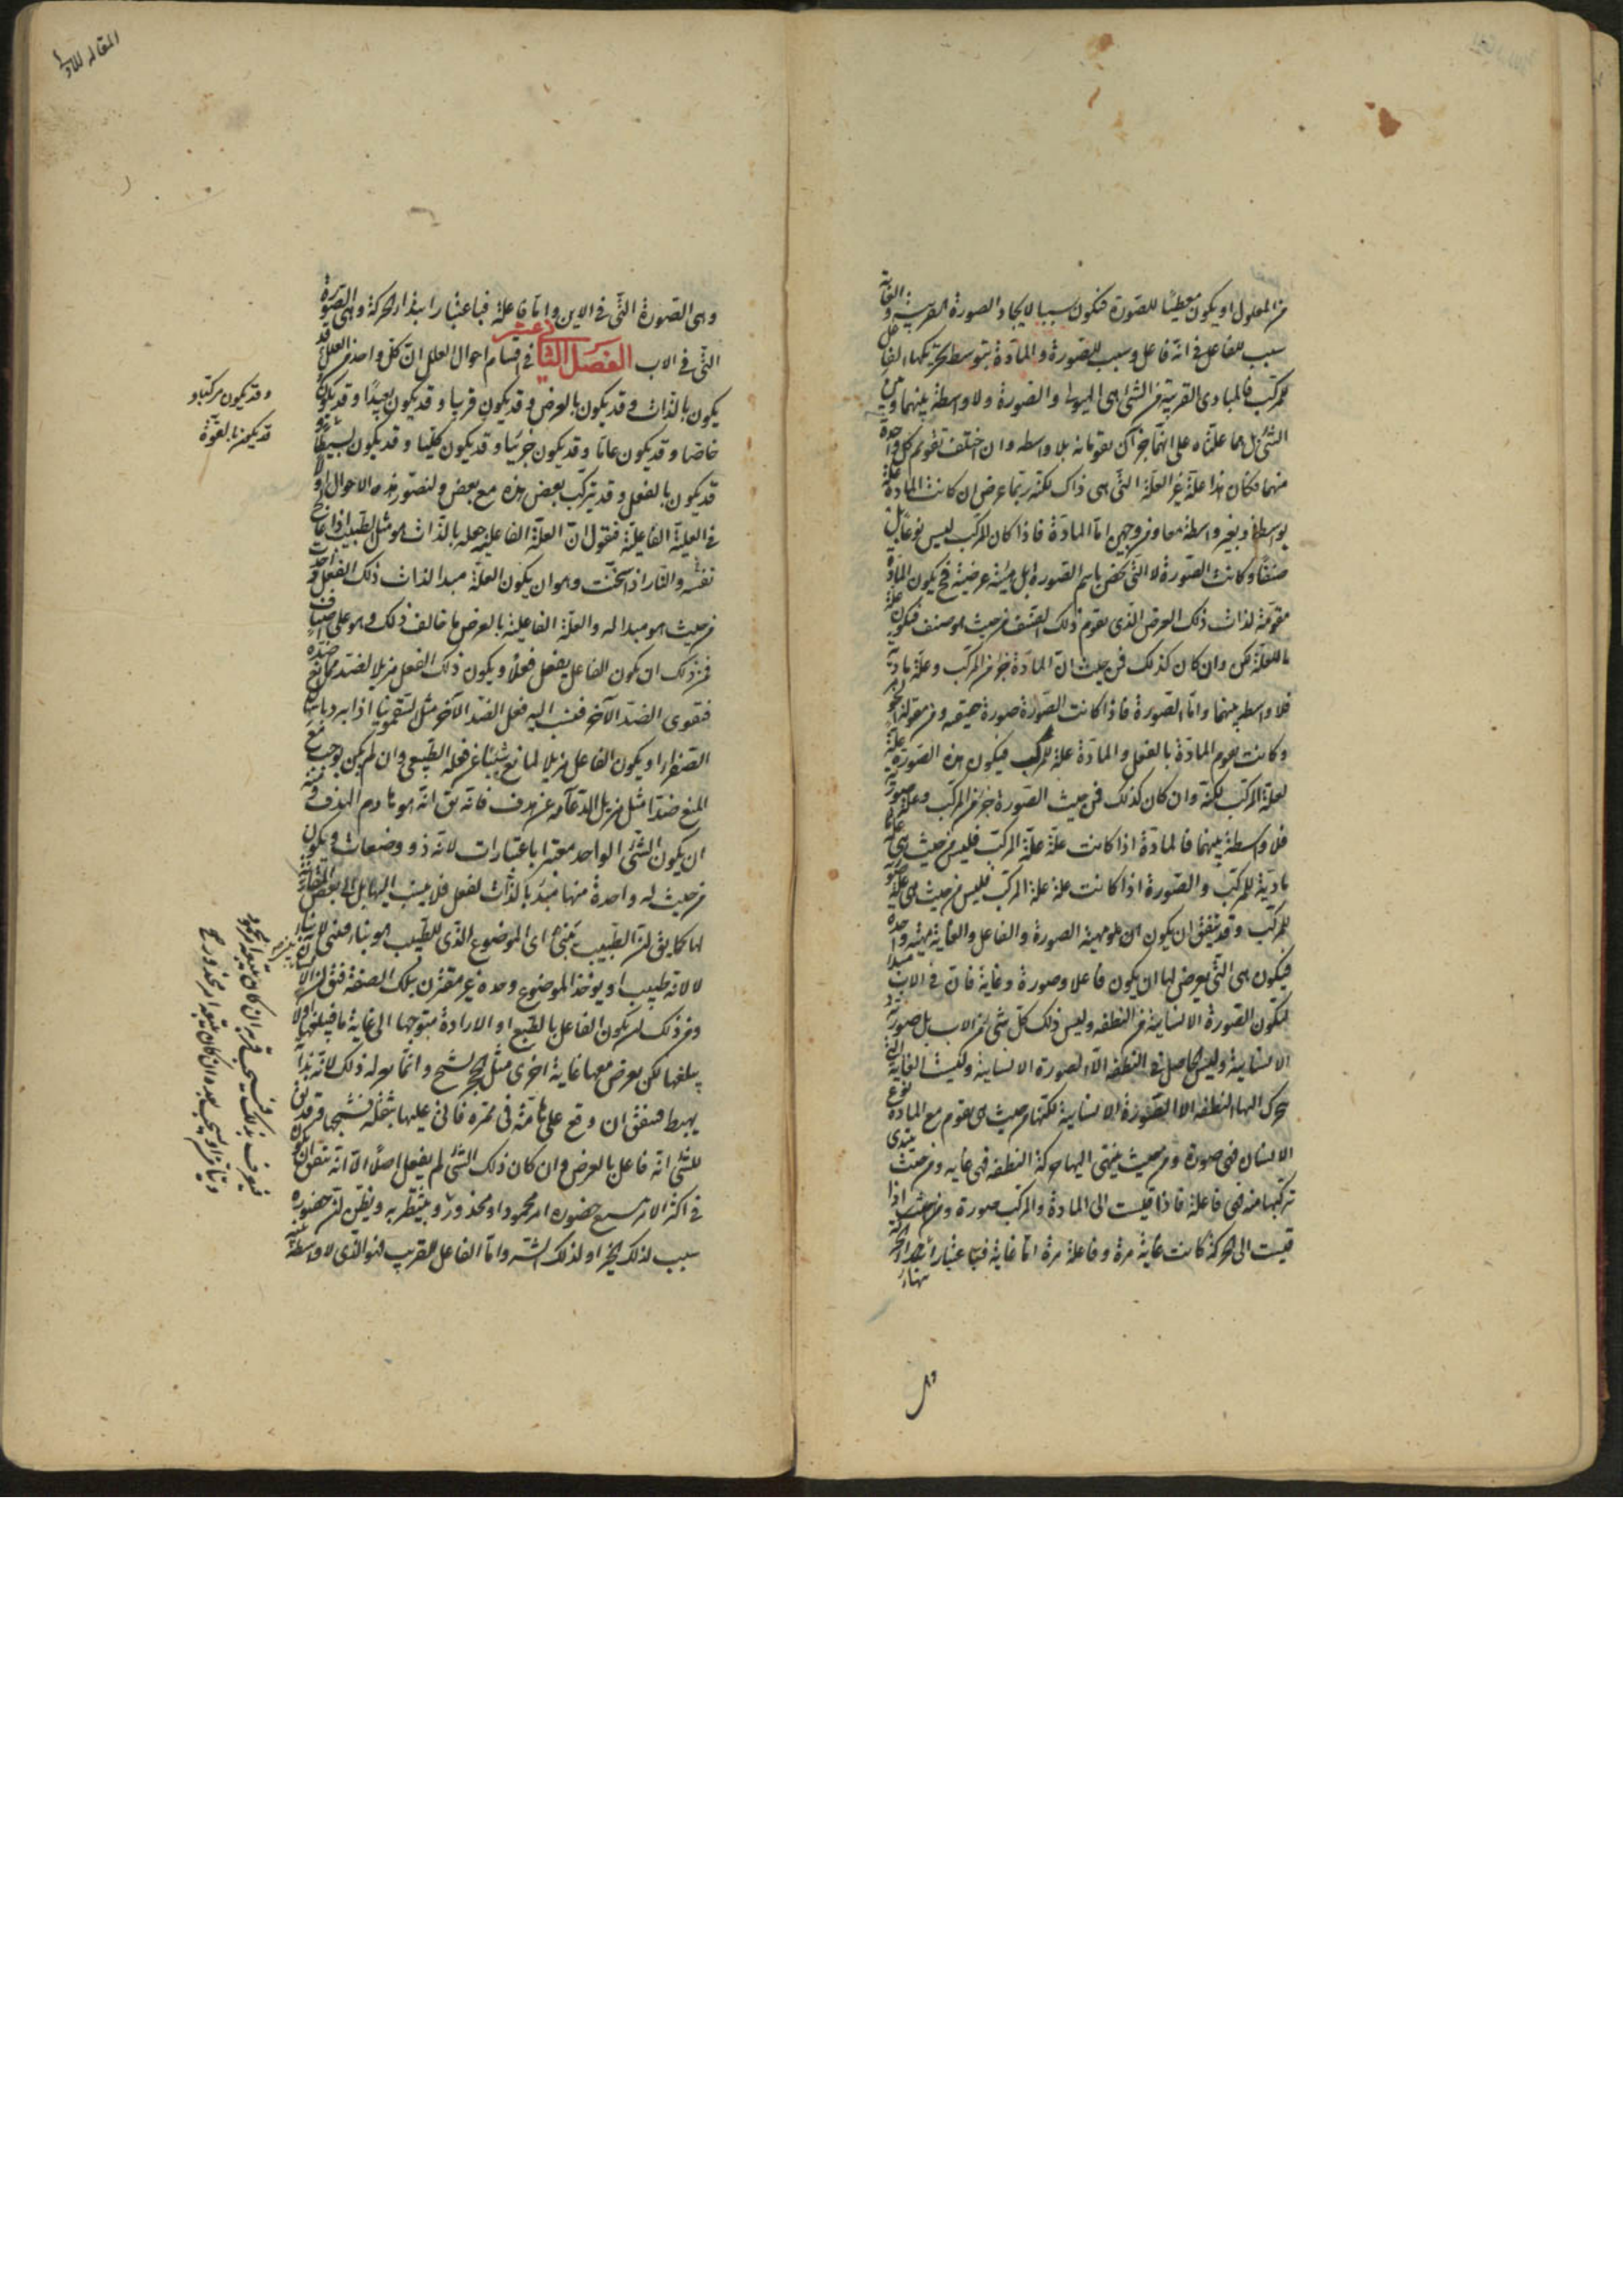 من المعلول او يكون معطيا للصورة فتكون سببا لايجاد الصورة القريبة والغاية
سبب للفاعل فى انه فاعل وسبب للصورة والمادة بتوسط تحريكها الفاعل
المركب فالمبادى القريبة من الشئ هى الهيولى والصورة ولا واسطة بينهما وبين
الشئ بل هما علتاه على انهما جزآن يقومانه بلا واسطه وان اختلف تقويم كل واحدة
منهما فكان هذا علة غير العلة التى هى ذاك لكنه ربما عرض ان كانت المادة علة
بواسطة وبغير واسطة معا من وجهين اما المادة فاذا كان المركب ليس نوعا بل
صنفا وكانت الصورة لا التى تخص باسم الصورة بل هيئة عرضية فح يكون المادة
مقومة لذات ذلك العرض الذى يقوم ذلك الصنف من حيث هو صنف فتكون علة
ما للعلة لكن وان كان كذلك فمن حيث ان المادة جزء من المركب وعلة مادية
فلا واسطة بينهما واما الصورة فاذا كانت الصورة صورة حقيقيه ومن مقولة الجوهر
وكانت تقوم المادة بالفعل والمادة علة للمركب فيكون هذه الصورة علة
لعلة المركب لكنه وان كان كذلك فمن حيث الصورة جزء من المركب وعلة صورية
فلا واسطة بينهما فالمادة اذا كانت علة علة المركب فليس من حيث هى علة
مادية للمركب والصورة اذا كانت علة علة المركب فليس من حيث هى علة صورية
للمركب وقد يتفق ان يكون مهية الصورة والفاعل والغاية مهية واحدة
فيكون هى التى يعرض لها ان يكون فاعلا وصورة وغاية فان فى الاب مبدأ
لتكون الصورة الانسانية من النطفه وليس ذلك كل شئ من الاب بل صورته
الانسانية وليس الحاصل فى النطفه الا الصورة الانسانية وليست الغاية التى
تتحرك اليها النطفه الا الصورة الانسانية لكنها من حيث هى تقوم مع المادة نوع
الانسان فهى صورة ومن حيث ينتهى اليها حركة النطفه فهى غايه ومن حيث يبتدى
تركيبها منه فهى فاعلة فاذا قيست الى المادة والمركب كانت صورة واذا
قيست الى الحركة كانت غاية مرة وفاعلة مرة اما غاية فباعتبار انتهاء الحركة
وهى الصورة التى فى الابن واما فاعلة فباعتبار ابتداء الحركة وهى الصورة
التى فى الاب الفصل الثانى عشر فى اقسام احوال العلل ان كل واحد من العلل قد
يكون بالذات وقد يكون بالعرض وقد يكون قريبا وقد يكون بعيدا وقد يكون
خاصا وقد يكون عاما وقد يكون جزئيا وقد يكون كليا وقد يكون بسيطا و
قد يكون بالفعل وقد يتركب بعض هذه مع بعض ولنصور هذه الاحوال اولا
فى العلة الفاعلية فنقول ان العلة الفاعلية بالذات هو مثل الطبيب اذا عالج
نفسه والنار اذا سخنت وهو ان يكون العلة مبدا لذات ذلك الفعل واخذت
من حيث هو مبدا له والعلة الفاعلية بالعرض ما خالف ذلك وهو على اصناف
فمن ذلك ان يكون الفاعل يفعل فعلا ويكون ذلك الفعل مزيلا لضد ممانع ضده
فيقوى الضد الآخر فينسب اليه فعل الضد الآخر مثل السقمونيا اذا برد باسهال
الصفرا او يكون الفاعل مزيلا لمانع شيئا عن فعله الطبيعى وان لم يكن يوجب مع
المنع ضدا مثل مزيل الدعامه عن هدف فانه يق انه هو هادم الهدف ومنه
ان يكون الشئ الواحد معتبرا باعتبارات لانه ذو وضعات ويكون
من حيث له واحدة منها مبدأ بالذات لفعل فلا ينسب اليها بل الى بعض المقارنة
لها كما يق ان الطبيب يبنى اى الموضوع الذى للطبيب هو بناء فيبنى لانه بناء
لا لانه طبيب او يوخذ الموضوع وحده غير مقترن بتلك الصفة فيق ان الانسان
ومن ذلك ان يكون الفاعل بالطبع او الارادة متوجها الى غاية ما فيبلغها اولا
يبلغها لكن يعرض معها غاية اخرى مثل الحجر يشج وانما عرض له ذلك لانه بذاته
يهبط فيتفق ان وقع على هامّة فى ممره فاتى عليها بثقله فشجها وقد يق
للشئ انه فاعل بالعرض وان كان ذلك الشئ لم يفعل اصلا الا انه يتفق ان يكون
فى اكثر الامر يتبع حضوره امر محمود او محذور ويتنظر به ويظن ان حضوره
سبب لذلك الخير او لذلك الشر واما الفاعل القريب فهو الذى لا واسطة بينه
المقاله الاو
وقد يكون مركبا و
قد يكون بالقوة